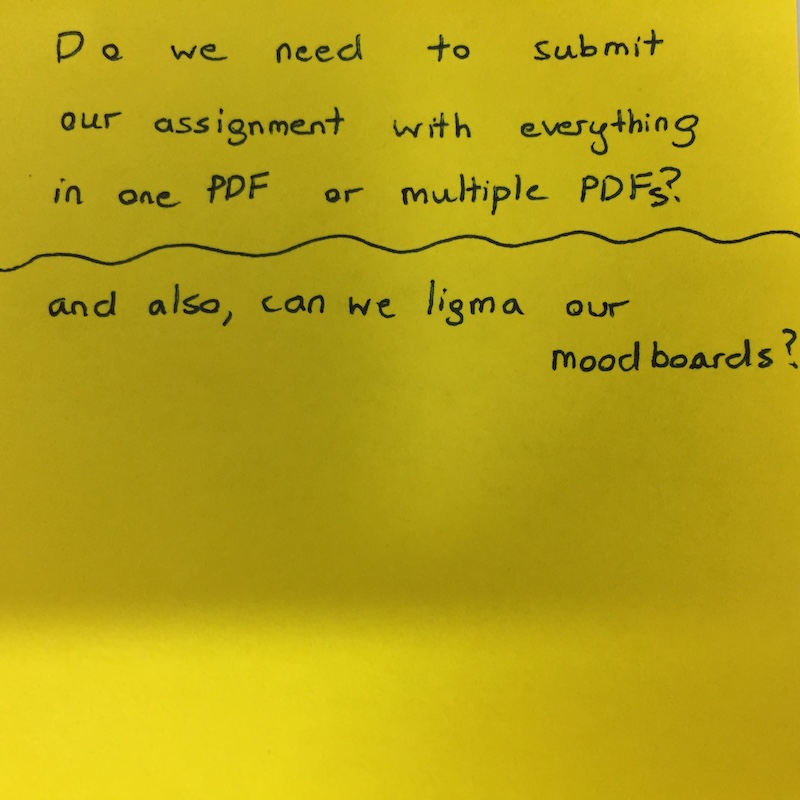 Do we need to submit
our assignment with everything
in one PDF or multiple PDFs?
and also, can we ligma our
moodboards?